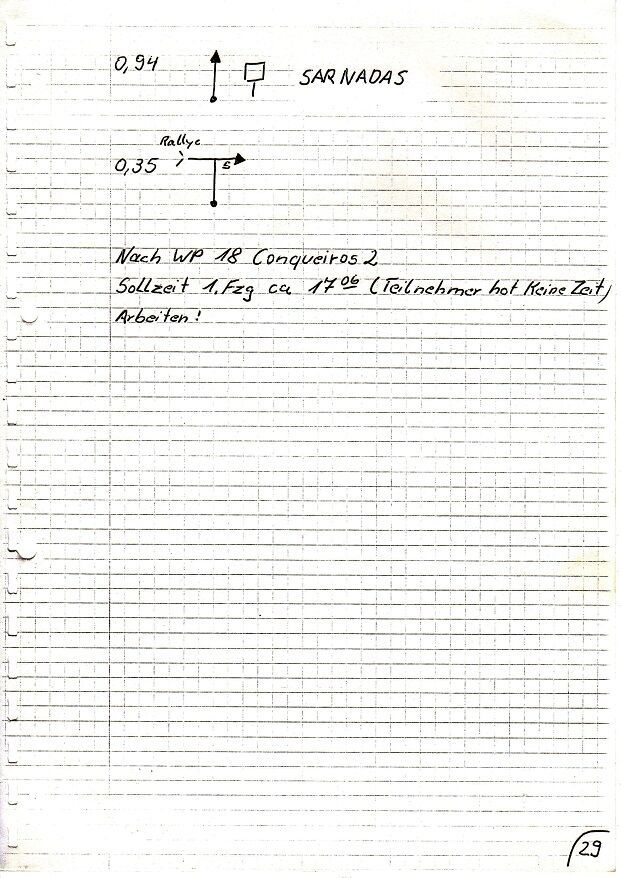 0,94 SARNADAS
Rallye
0,35 S
Nach WP 18 Conqueiros 2
Sollzeit 1. Fzg ca. 17 06 (Teilnehmer hat Keine Zeit)
Arbeiten!
29